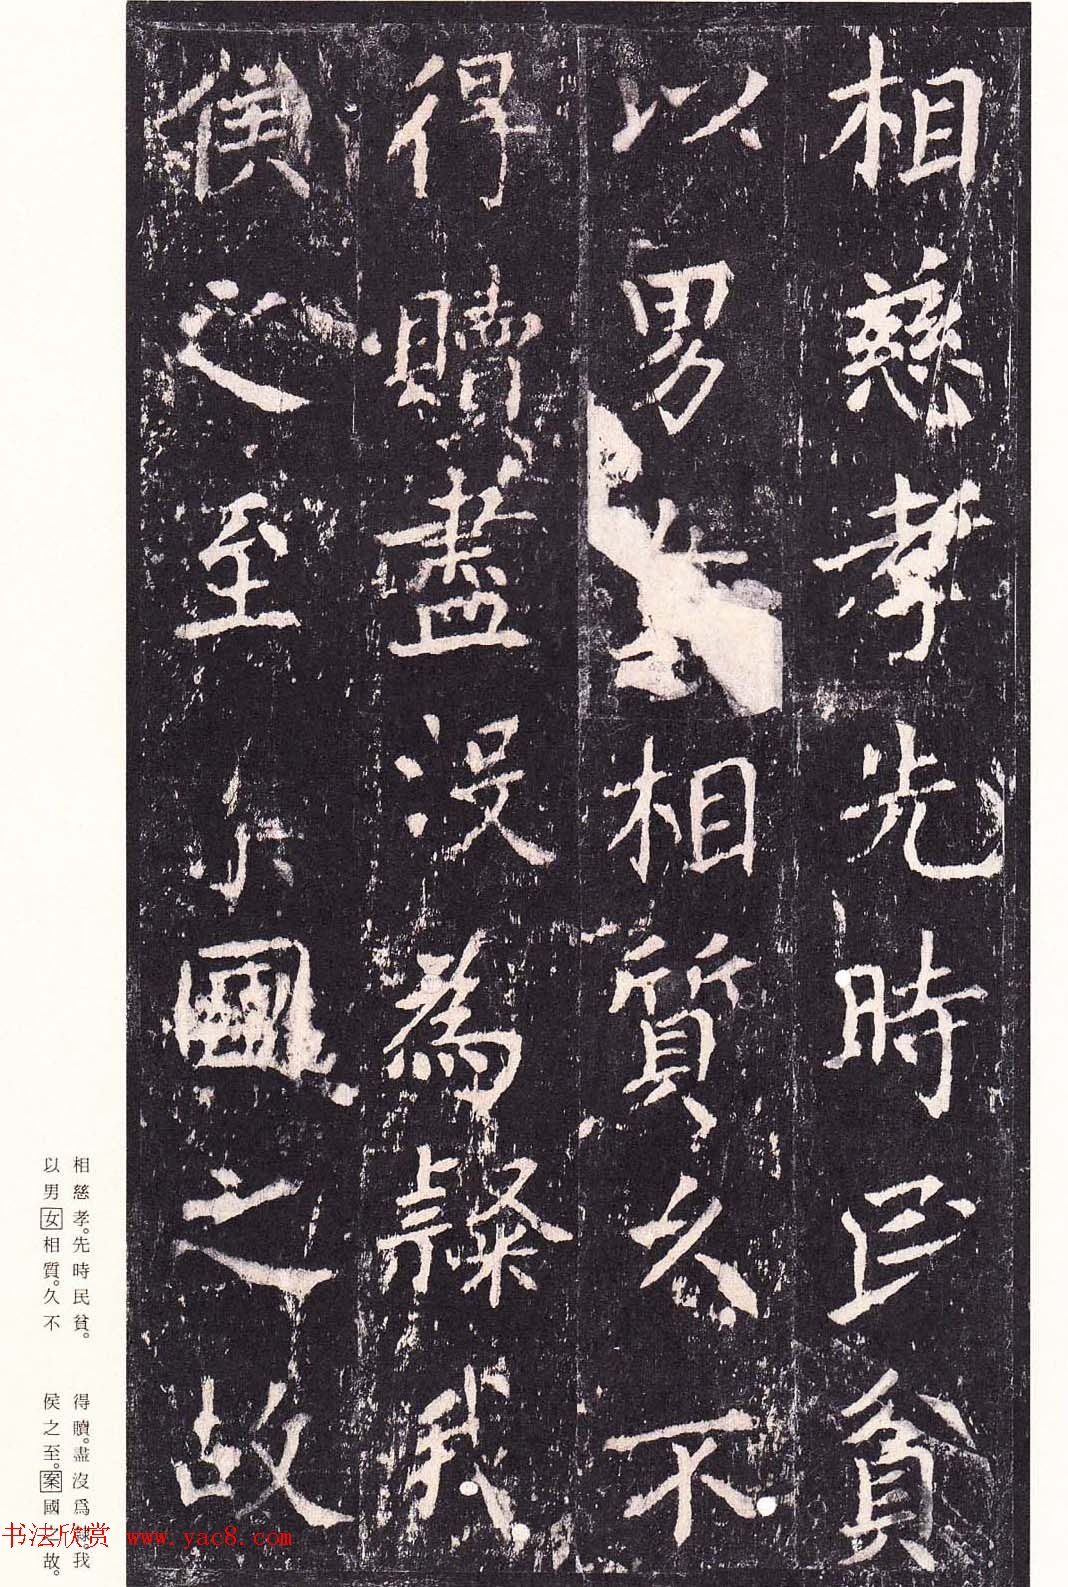 相慈孝先時民貧
以男女相質久不
得贖盡沒為隸我
侯之至案國之故
相慈孝。先時民貧。
以男女相質。久不
得贖。盡沒爲隸。我
侯之至。案國之故。
书法欣赏 www.yac8.com